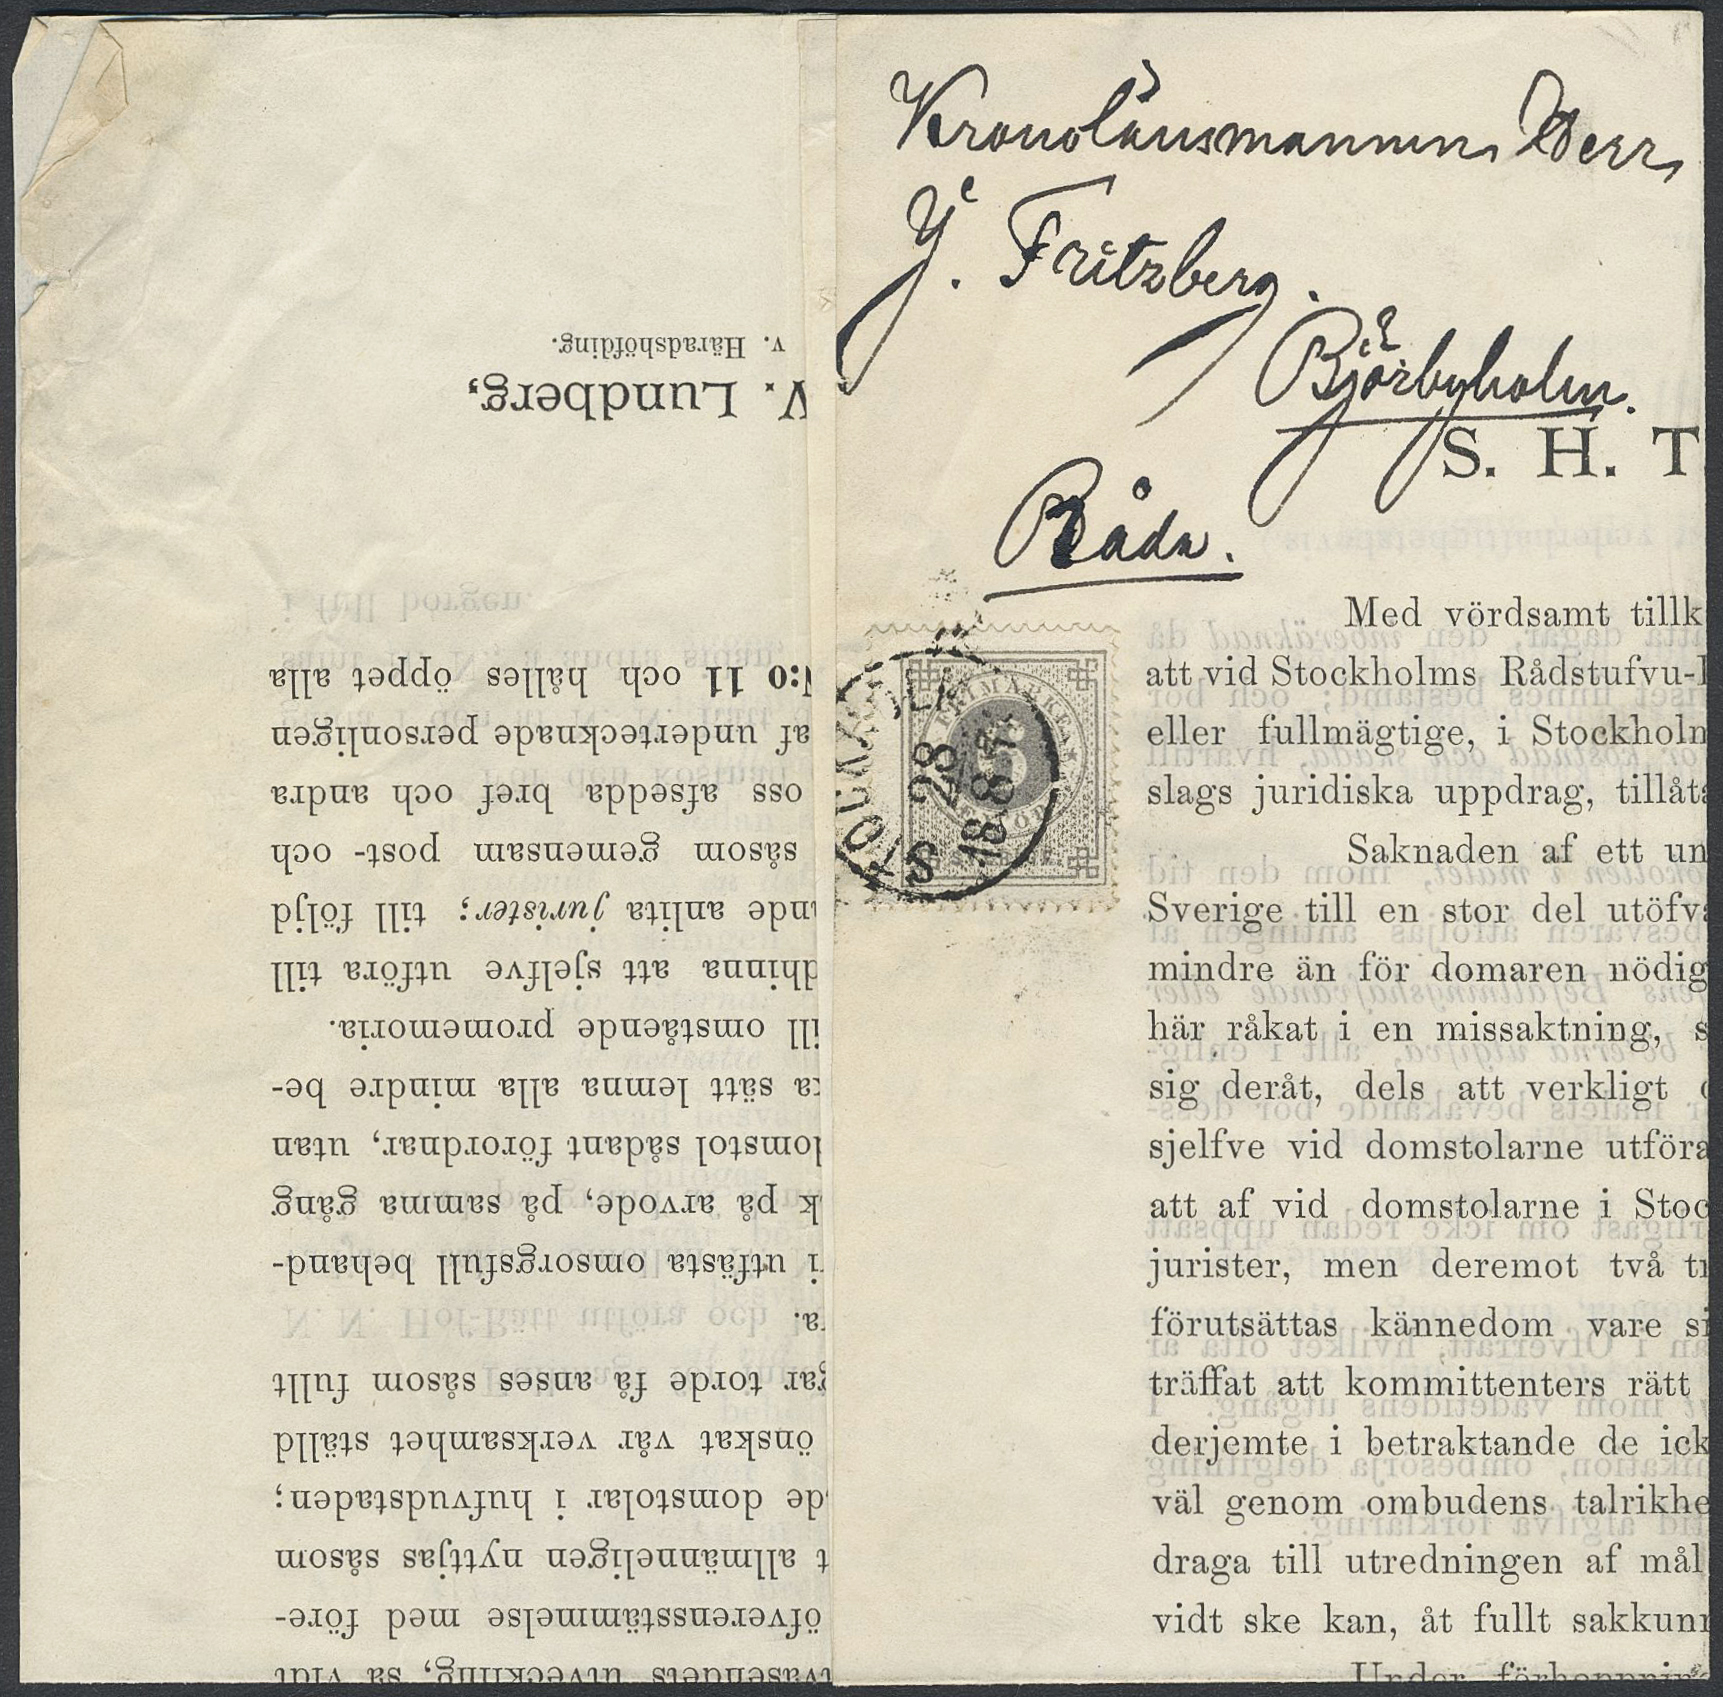 Kronolänsmannen Herr
J. Fritzberg.
Björbyholm.
Råda.
S. H. T.
STOCKHOLM
28
188
FRIMÄRKE
Med vördsamt tillk
att vid Stockholms Rådstufvu-
eller fullmägtige, i Stockholm
slags juridiska uppdrag, tillåta
Saknaden af ett un
Sverige till en stor del utöfva
mindre än för domaren nödig
här råkat i en missaktning, s
sig deråt, dels att verkligt
sjelfve vid domstolarne utföra
att af vid domstolarne i Stoc
jurister, men deremot två
förutsättas kännedom vare si
träffat att kommittenters rätt
derjemte i betraktande de ick
väl genom ombudens talrikhe
draga till utredningen af mål
vidt ske kan, åt fullt sakkun
Under förhoppning
tväsendets utveckling, så vidt
öfverensstämmelse med före-
t allmänneligen nyttjas såsom
de domstolar i hufvudstaden;
önskat vår verksamhet ställd
gar torde få anses såsom fullt
ra.
i utfästa omsorgsfull behand-
k på arvode, på samma gång
domstol sådant förordnar, utan
ka sätt lemna alla mindre be-
ill omstående promemoria.
dhinna att sjelfve utföra till
ande anlita jurister; till följd
såsom gemensam post- och
oss afsedda bref och andra
af undertecknade personligen
N:o 11 och hålles öppet alla
V. Lundberg,
v. Häradshöfding.